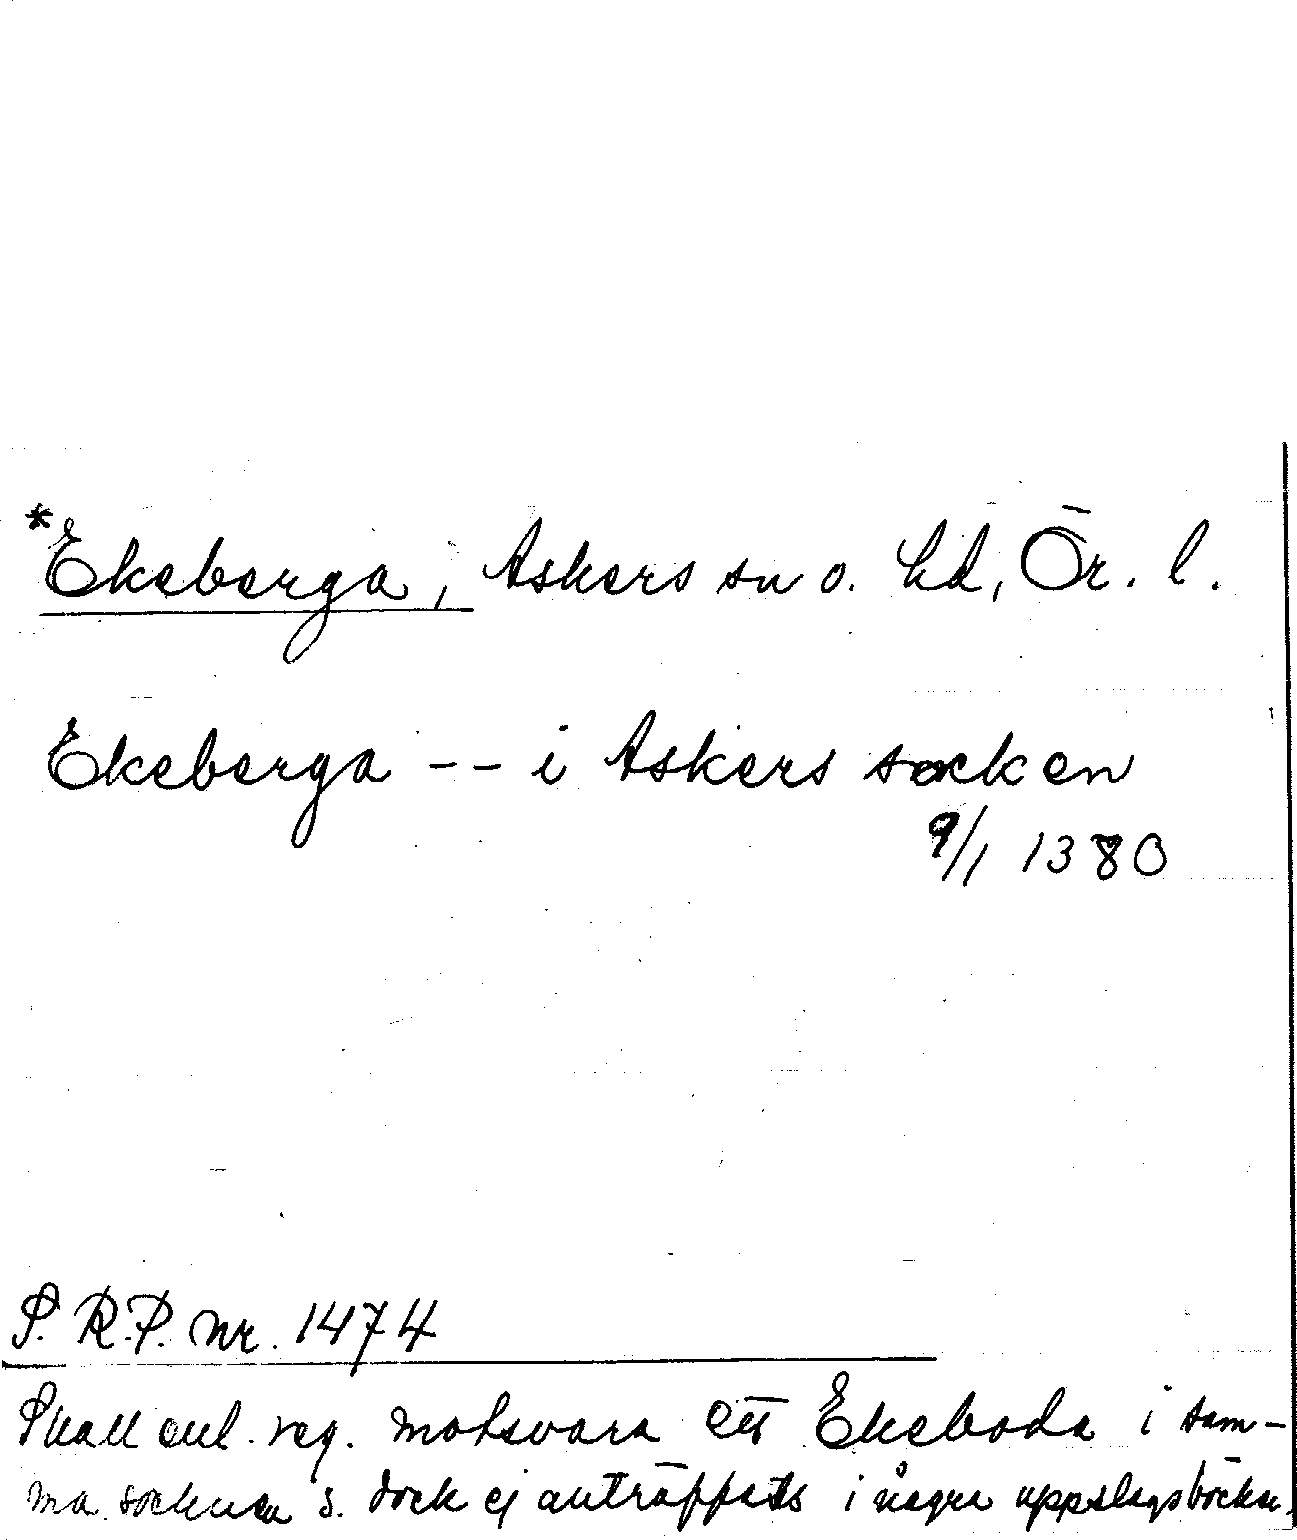 *Ekeberga, Askers sn o. hd, Ör. l.
Ekeberga -- i Askers socken
9/1 1380
S. R.P. nr. 1474
Skall enl. reg. motsvara ett Ekeboda i sam-
ma socken s. dock ej anträffats i några uppslagsböcker.